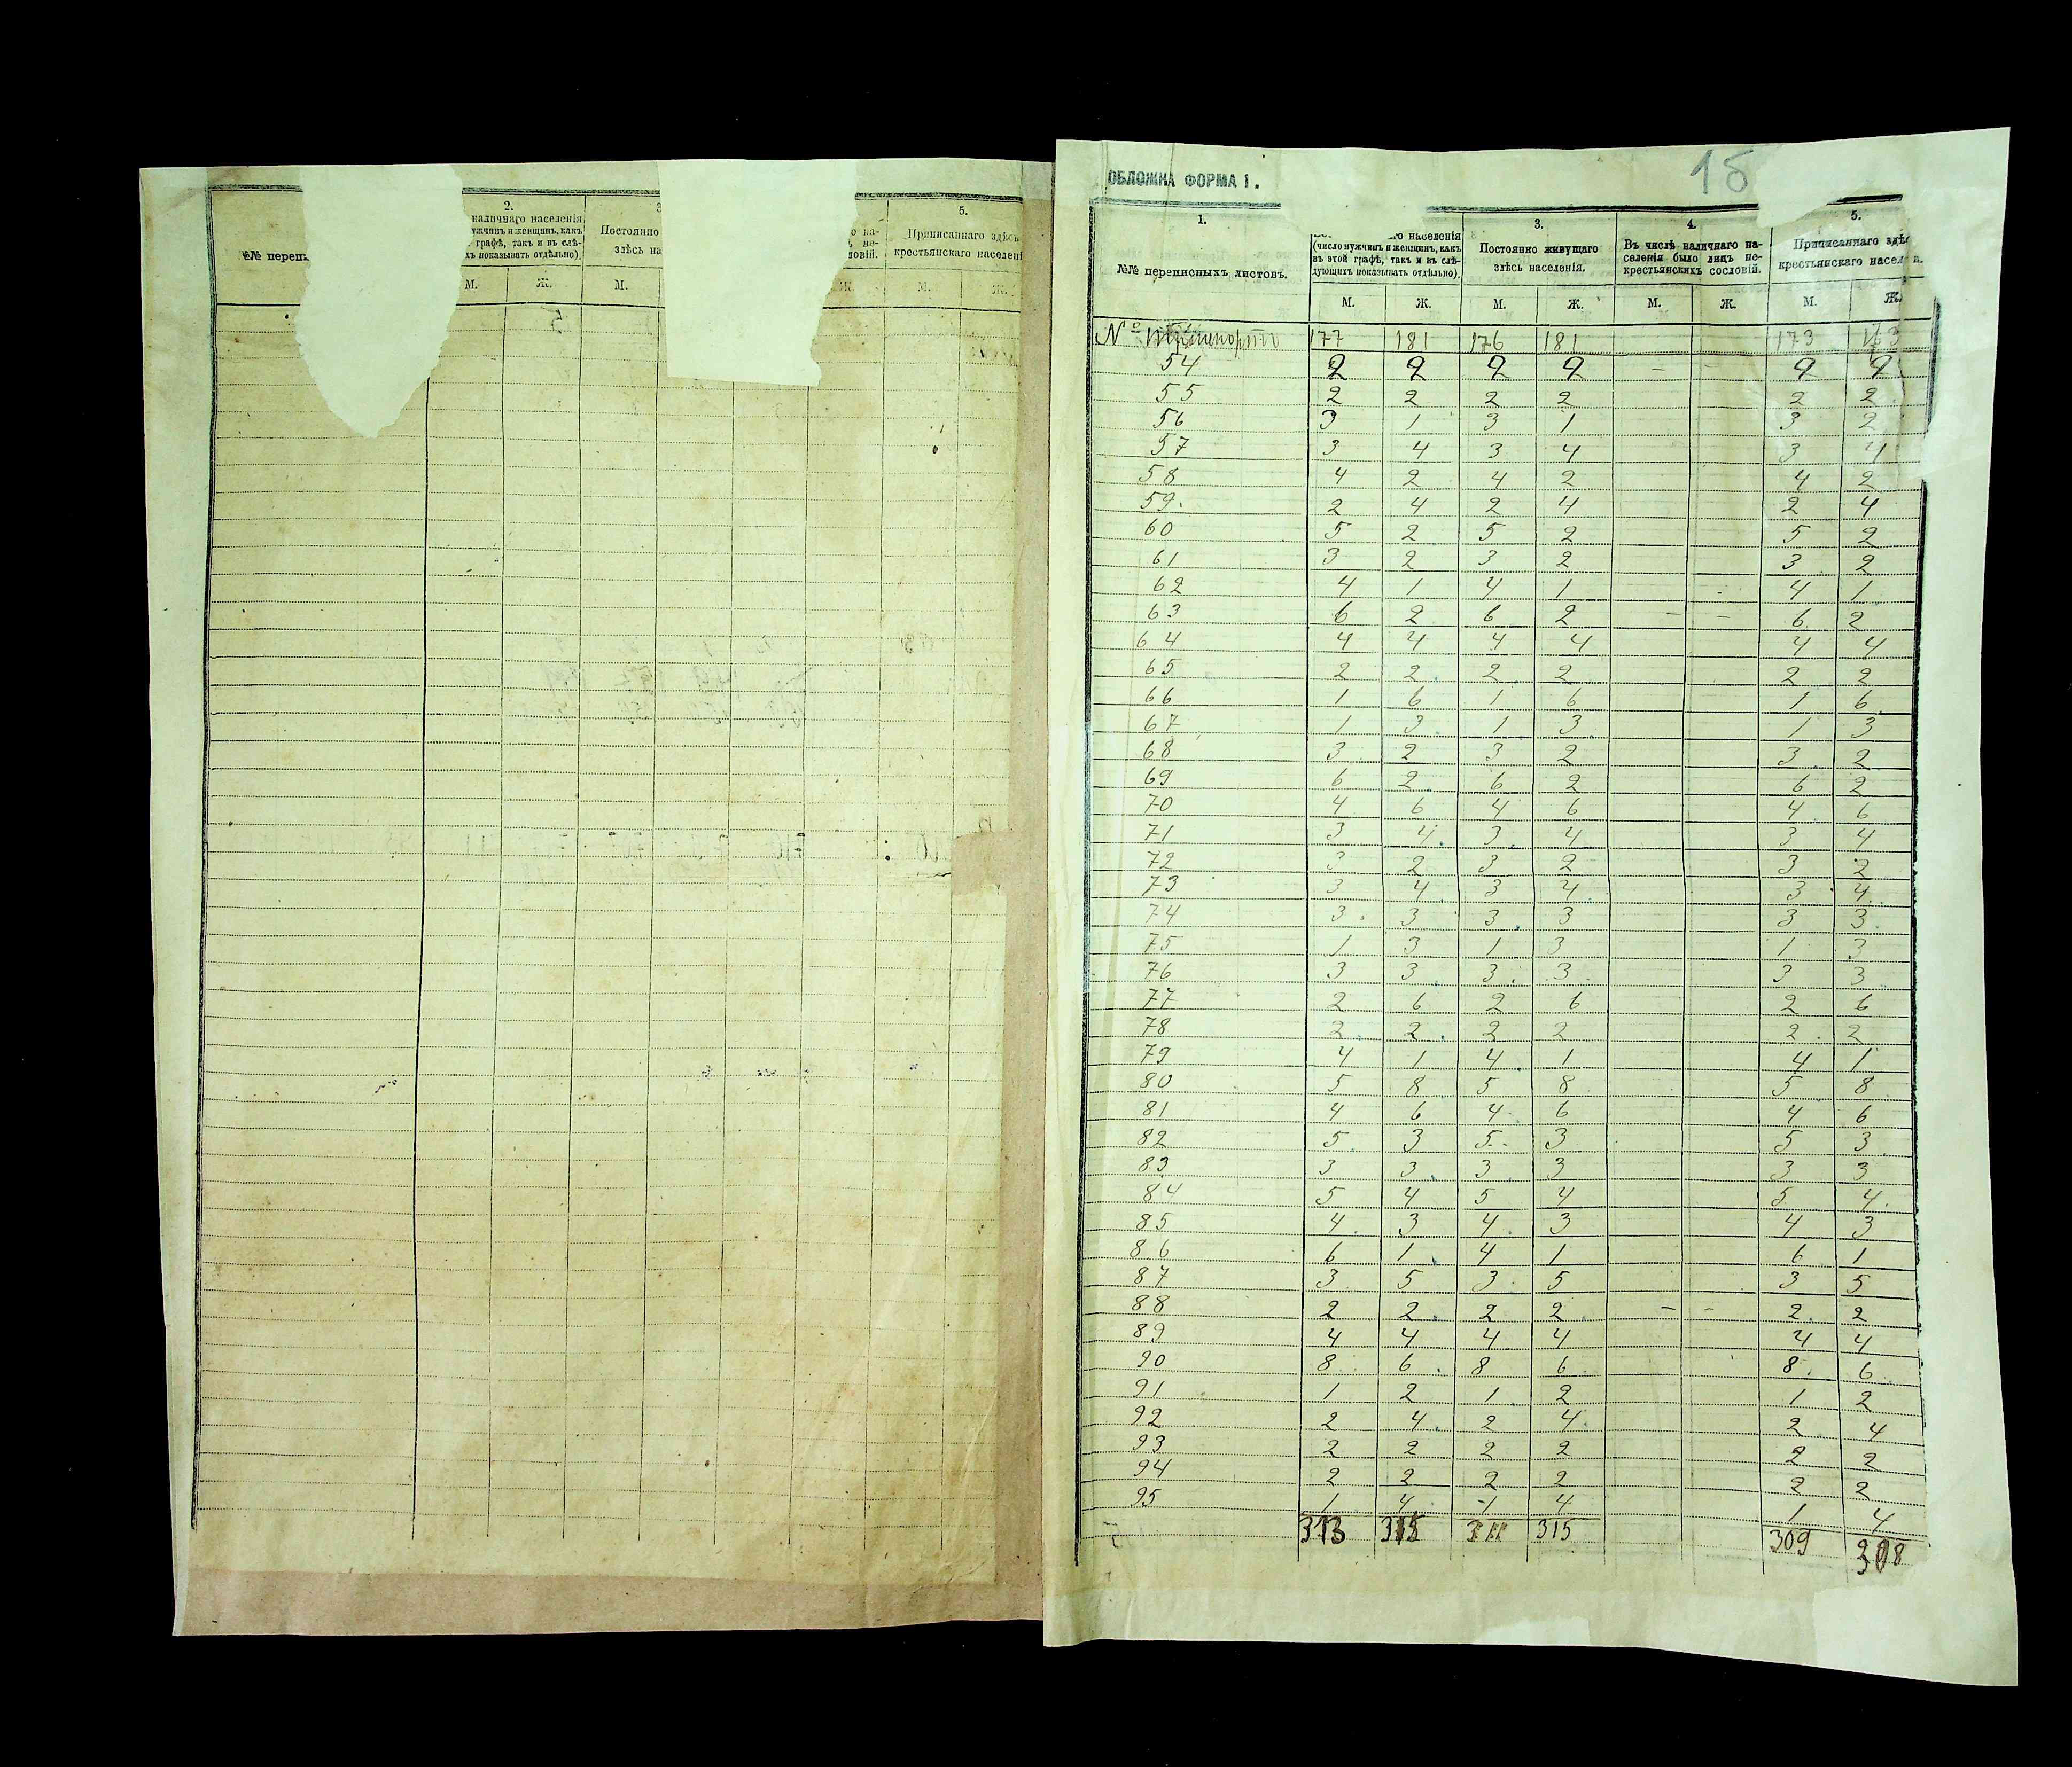 2. 3 5.
наличнаго населенія
ужчинъ и женщинъ, какъ
графѣ, такъ и въ слѣ-
хъ показывать отдѣльно).
Постоянно
здѣсь на
о на-
не-
ловій.
Приписаннаго здѣсь
крестьянскаго населені
№№ переп
М. Ж. М. Ж. М. Ж.
ОБЛОЖКА ФОРМА 1.
15
1. 3. 4. 5.
№№ переписныхъ листовъ.
го населенія
(число мужчинъ и женщинъ, какъ
въ этой графѣ, такъ и въ слѣ-
дующихъ показывать отдѣльно).
Постоянно живущаго
здѣсь населенія.
Въ числѣ наличнаго на-
селенія было лицъ не-
крестьянскихъ сословій.
Приписаннаго здѣс
крестьянскаго населен
М. Ж. М. Ж. М. Ж. М. Ж.
№ 177 181 176 181 173
54 2 2 2 2 - - 2 2
55 2 2 2 2 2 2
56 3 1 3 1 3 2
57 3 4 3 4 3 4
58 4 2 4 2 4 2
59. 2 4 2 4 2 4
60 5 2 5 2 5 2
61 3 2 3 2 3 2
62 4 1 4 1 4 1
63 6 2 6 2 - - 6 2
64 4 4 4 4 4 4
65 2 2 2 2 2 2
66 1 6 1 6 1 6
67 1 3 1 3 1 3
68 3 2 3 2 3 2
69 6 2 6 2 6 2
70 4 6 4 6 4 6
71 3 4 3 4 3 4
72 3 2 3 2 3 2
73 3 4 3 4 3 4
74 3 3 3 3 3 3
75 1 3 1 3 1 3
76 3 3 3 3 3 3
77 2 6 2 6 2 6
78 2 2 2 2 2 2
79 4 1 4 1 4 1
80 5 8 5 8 5 8
81 4 6 4 6 4 6
82 5 3 5 3 5 3
83 3 3 3 3 3 3
84 5 4 5 4 5 4
85 4 3 4 3 4 3
86 6 1 4 1 6 1
87 3 5 3 5 3 5
88 2 2 2 2 - - 2 2
89 4 4 4 4 4 4
90 8 6 8 6 8 6
91 1 2 1 2 1 2
92 2 4 2 4 2 4
93 2 2 2 2 2 2
94 2 2 2 2 2 2
95 1 4 1 4 1 4
313 315 311 315 309 308